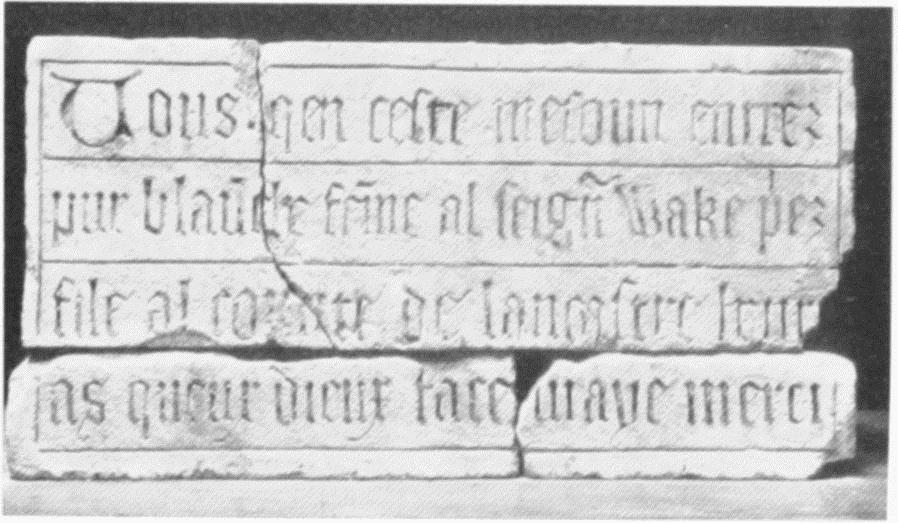 Uous qen ceste mesoun entrez
pur blaūche fēme al seigñ Wake p̄ez
file al counte de lancastre leur
as queur dieux face uraye merci